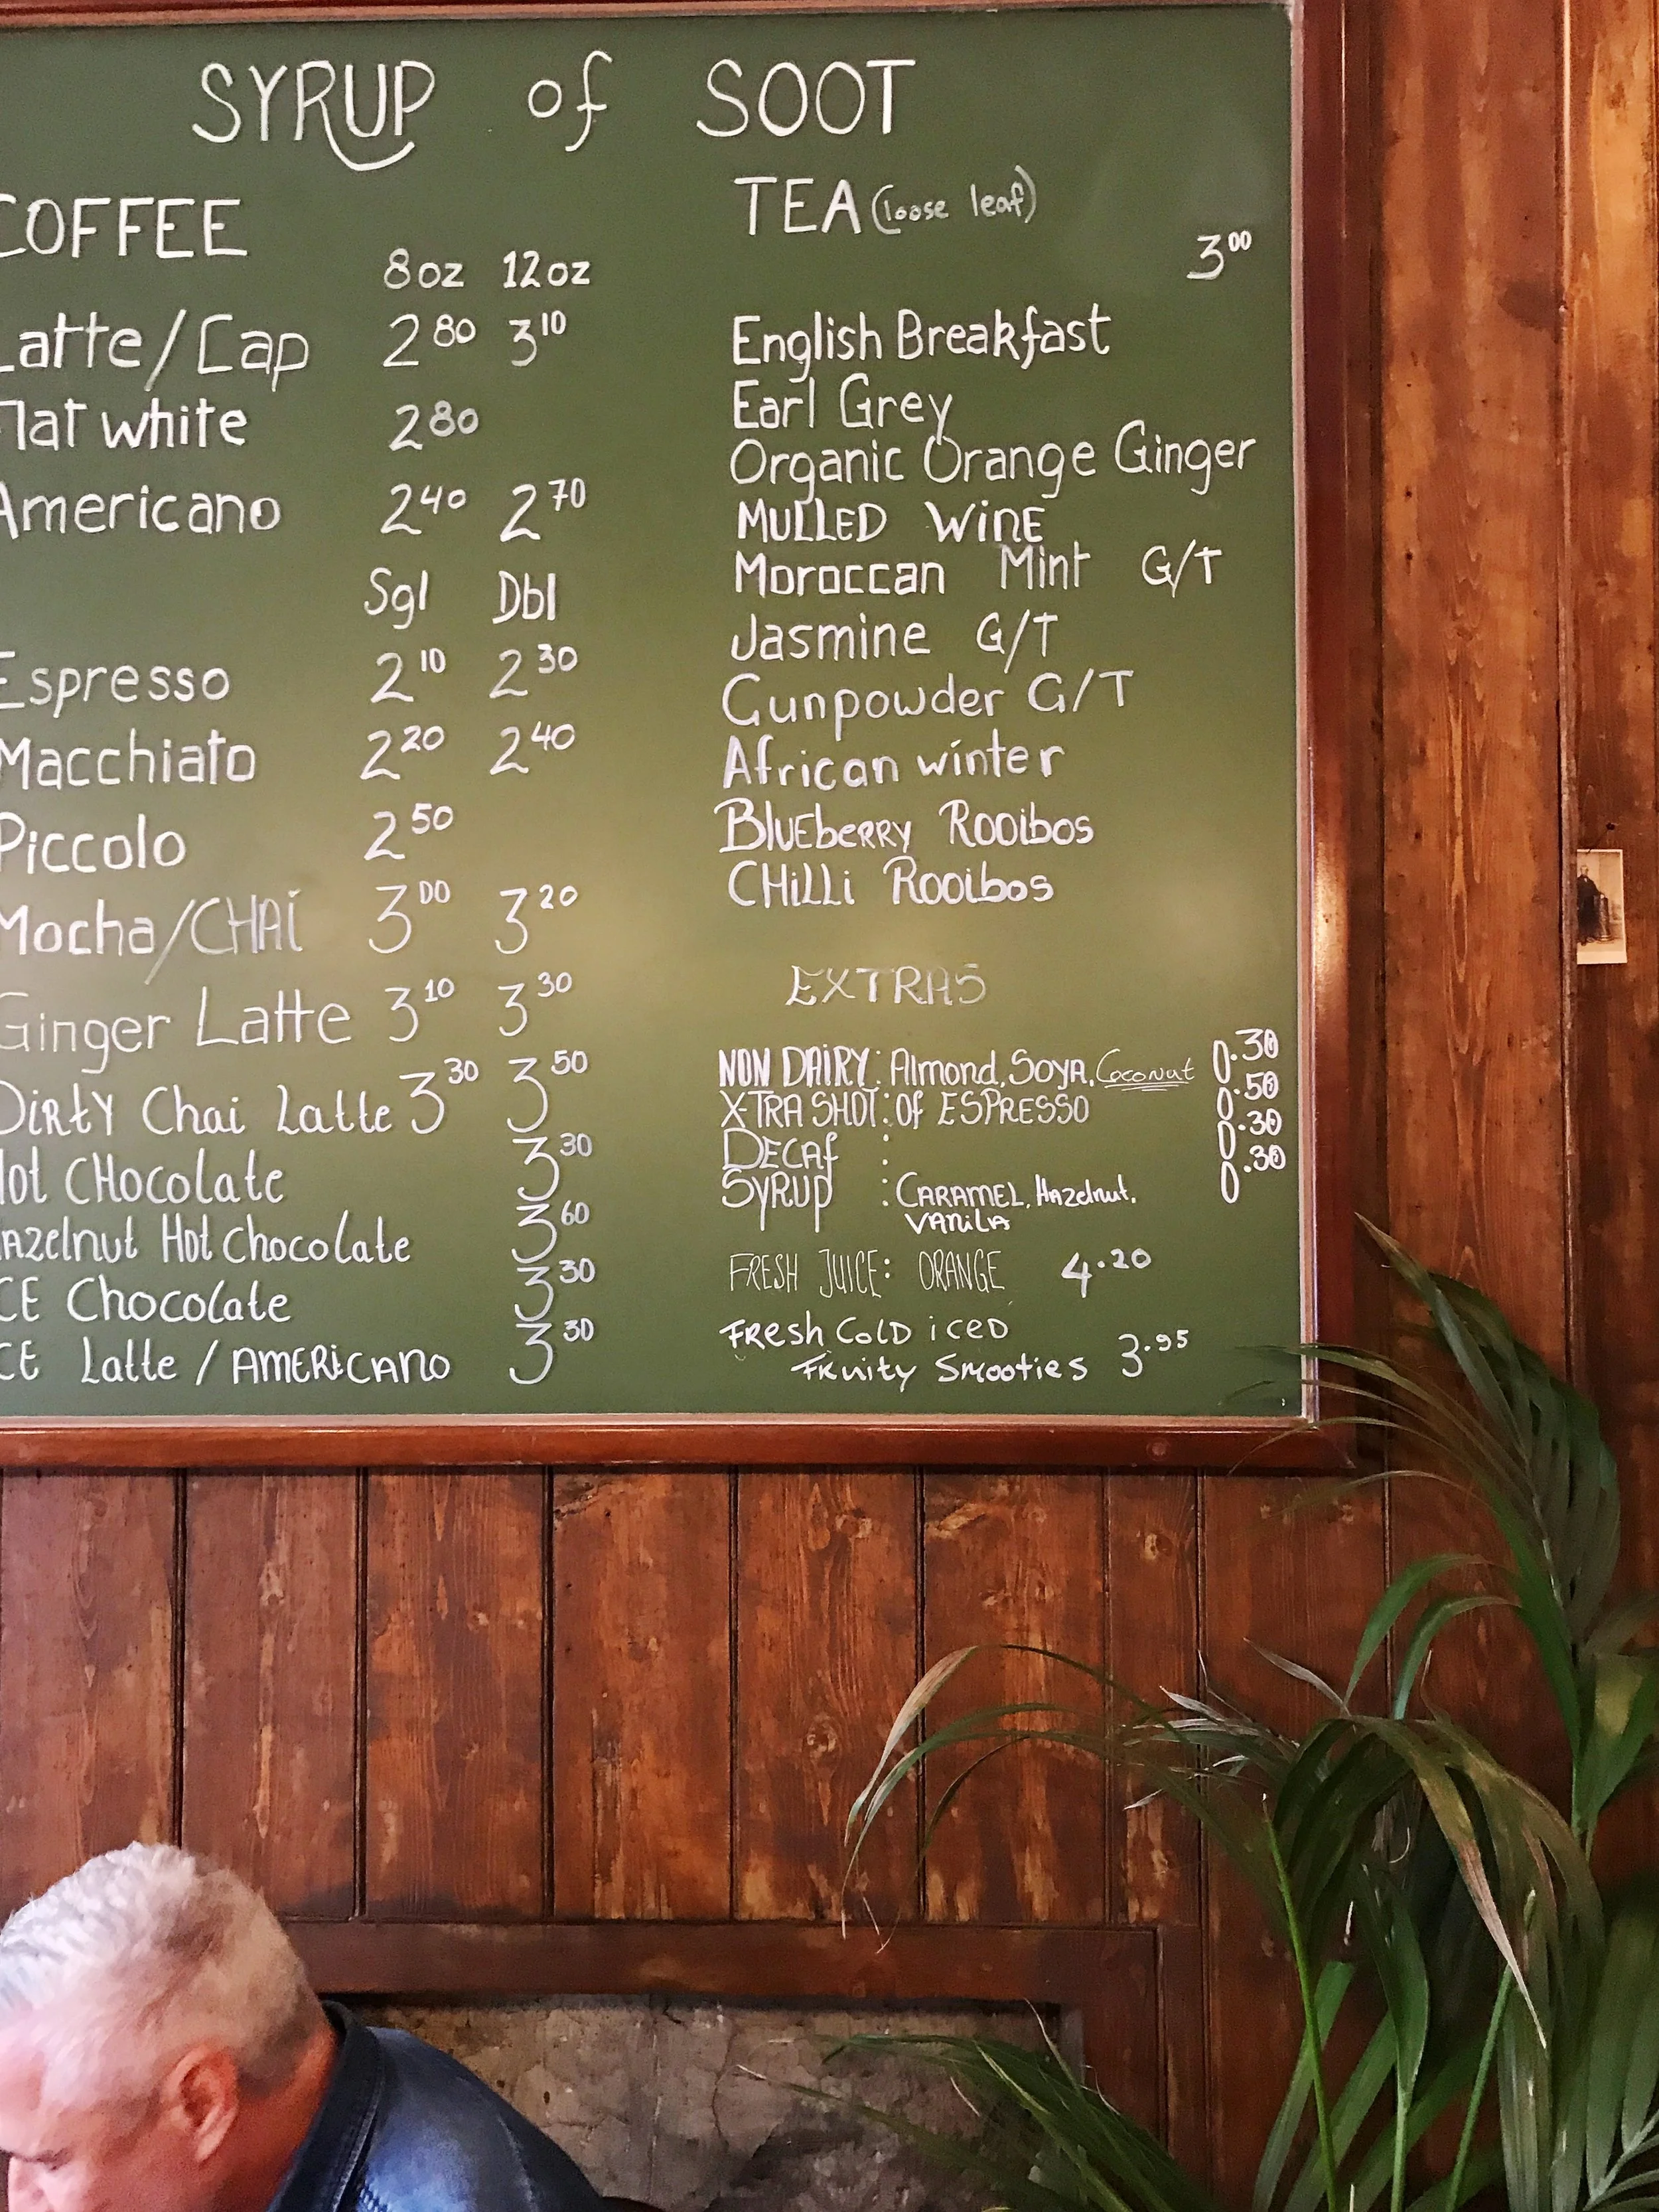 SYRUP of SOOT
COFFEE
8oz 12oz
Latte/Cap 2 80 3 10
Flat white 2 80
Americano 2 40 2 70
Sgl Dbl
Espresso 2 10 2 30
Macchiato 2 20 2 40
Piccolo 2 50
Mocha/CHAI 3 00 3 20
Ginger Latte 3 10 3 30
DiRtY Chai Latte 3 30 3 50
Hot CHocolate 3 30
Hazelnut Hot Chocolate 3 60
ICE Chocolate 3 30
ICE Latte / AMERiCANO 3 30
TEA (loose leaf)
3 00
English Breakfast
Earl Grey
Organic Orange Ginger
MULLED WinE
Moroccan Mint G/T
Jasmine G/T
Gunpowder G/T
African winter
BlUEbeRRY ROOibos
CHiLLi ROOibos
EXTRAS
NON DAIRY: Almond, SoYA, Coconut 0.30
X-TRA SHOT: Of ESPRESSO 0.50
DECAf : 0.30
SYRUP : CARAMEL, HAzelnut, 0.30
VANiLA
FRESH JUICE: ORANGE 4.20
FResh ColD iceD
FRuity Smooties 3.95